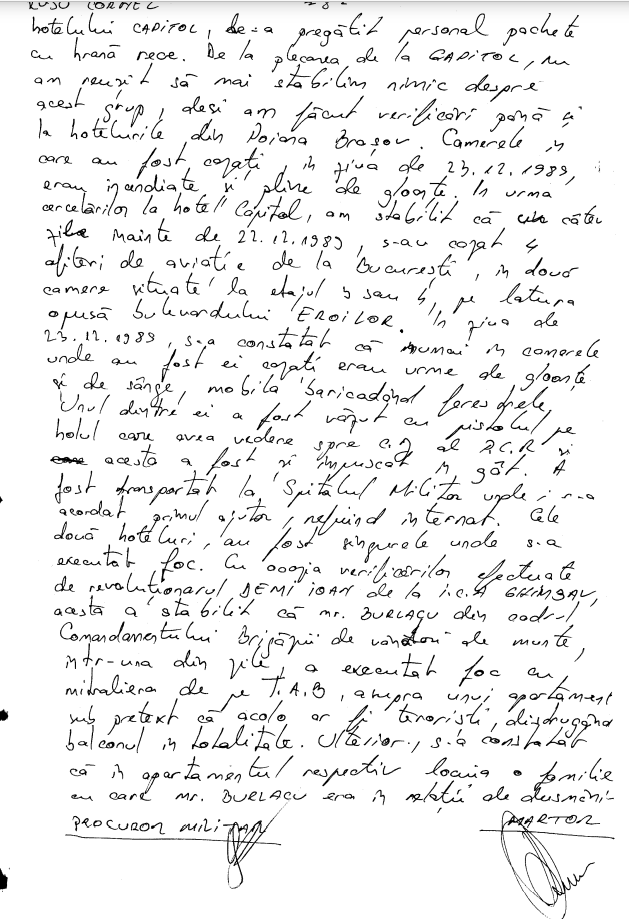 RUSU CORNEL - 2 -
hotelului CAPITOL, de-a pregătit personal pachete
cu hrană rece. De la plecarea de la CAPITOL, nu
am reușit să mai stabilim nimic despre
acest grup, deși am făcut verificări până și
la hotelurile din Poiana Brașov. Camerele în
care au fost cazați, în ziua de 23.12.1989,
erau incendiate și pline de gloanțe. În urma
cercetărilor la hotel Capitol, am stabilit că câteva
zile înainte de 22.12.1989, s-au cazat 4
ofițeri de aviație de la București, în două
camere situate la etajul 3 sau 4, pe latura
opusă bulevardului EROILOR. În ziua de
23.12.1989, s-a constatat că numai în camerele
unde au fost ei cazați erau urme de gloanțe
și de sânge, mobila baricadând ferestrele.
Unul dintre ei a fost văzut cu pistolul pe
holul care avea vedere spre C.J. al P.C.R. și
acesta a fost și împușcat în gât. A
fost transportat la Spitalul Militar unde i s-a
acordat primul ajutor, nefiind internat. Cele
două hoteluri, au fost singurele unde s-a
executat foc. Cu ocazia verificărilor efectuate
de revoluționarul DEMI IOAN de la I.C.A GHIMBAV,
acesta a stabilit că mr. BURLACU din cadrul
Comandamentului Brigăzii de vânători de munte,
într-una din zile, a executat foc cu
mitraliera de pe T.A.B, asupra unui apartament
sub pretext că acolo ar fi teroriști, distrugând
balconul în totalitate. Ulterior, s-a constatat
că în apartamentul respectiv locuia o familie
cu care mr. BURLACU era în relații de dușmăni-
PROCUROR MILITAR MARTOR